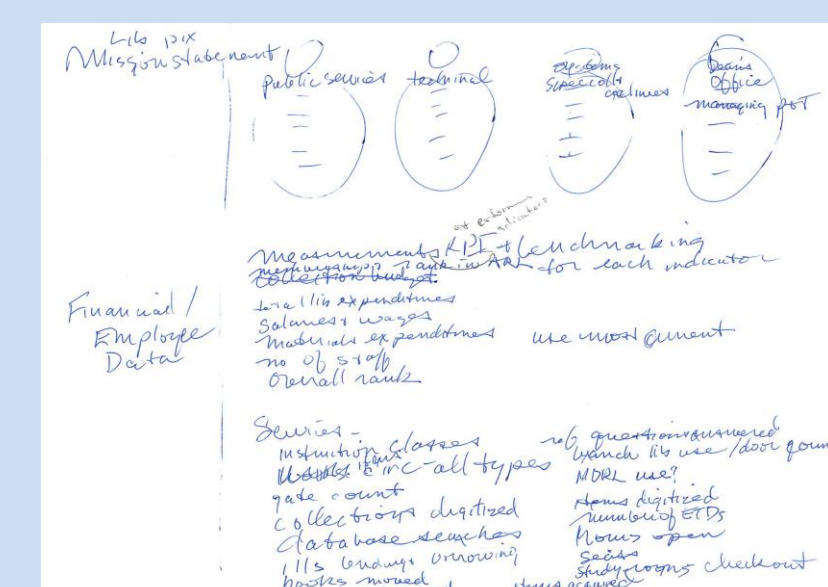 Lib pix
Mission statement
public services
technical
special colls
Dean's
Office
managing
measurements KPI + benchmarking
rank in ARL for each indicator
Financial /
Employee
Data
total lib expenditures
Salaries + wages
materials expenditures use most current
no of staff
Overall rank
Services -
instruction classes
circ - all types
gate count
collections digitized
database searches
ills lending + borrowing
books moved
no questions answered
branch lib use / door count
MDRL use?
items digitized
number of ETDs
Hours open
Seats
Study rooms checkout
items acquired